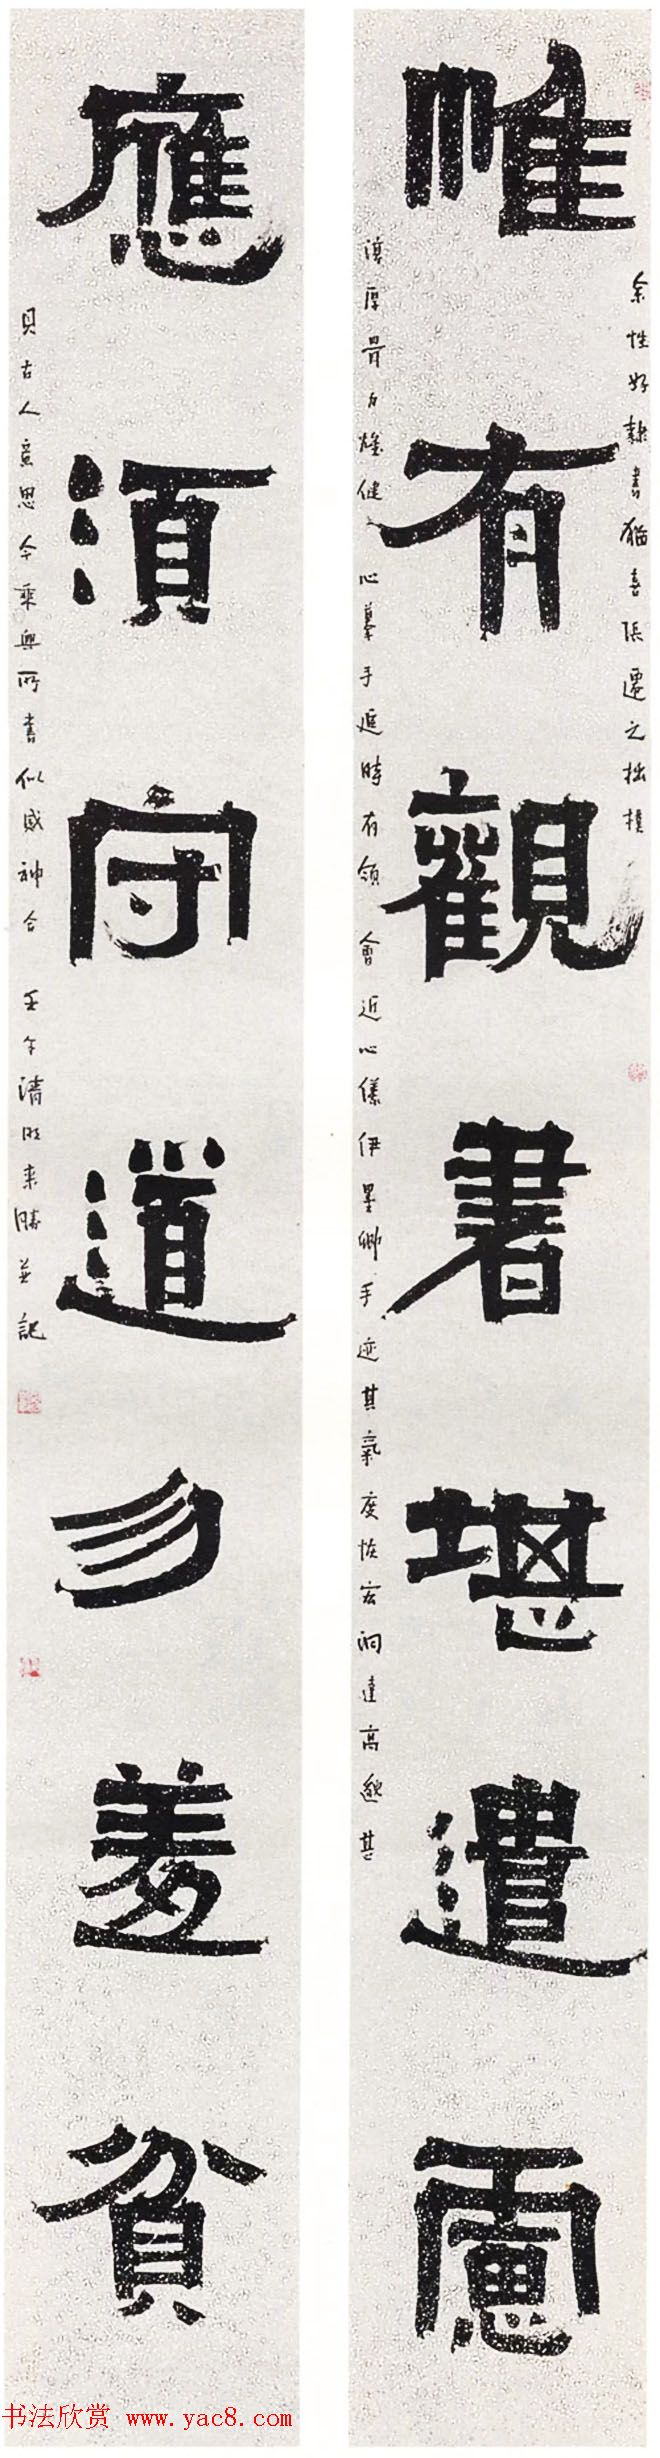 惟有觀書堪遣慮
應須守道勿羞貧
余性好隸書猶喜張遷之拙樸
淳厚骨力雄健心摹手追時有領會近心儀伊墨卿手迹其氣度恢宏洞達高邈甚
見古人意思今乘興所書似感神合
壬午清明來勝并記
书法欣赏 www.yac8.com